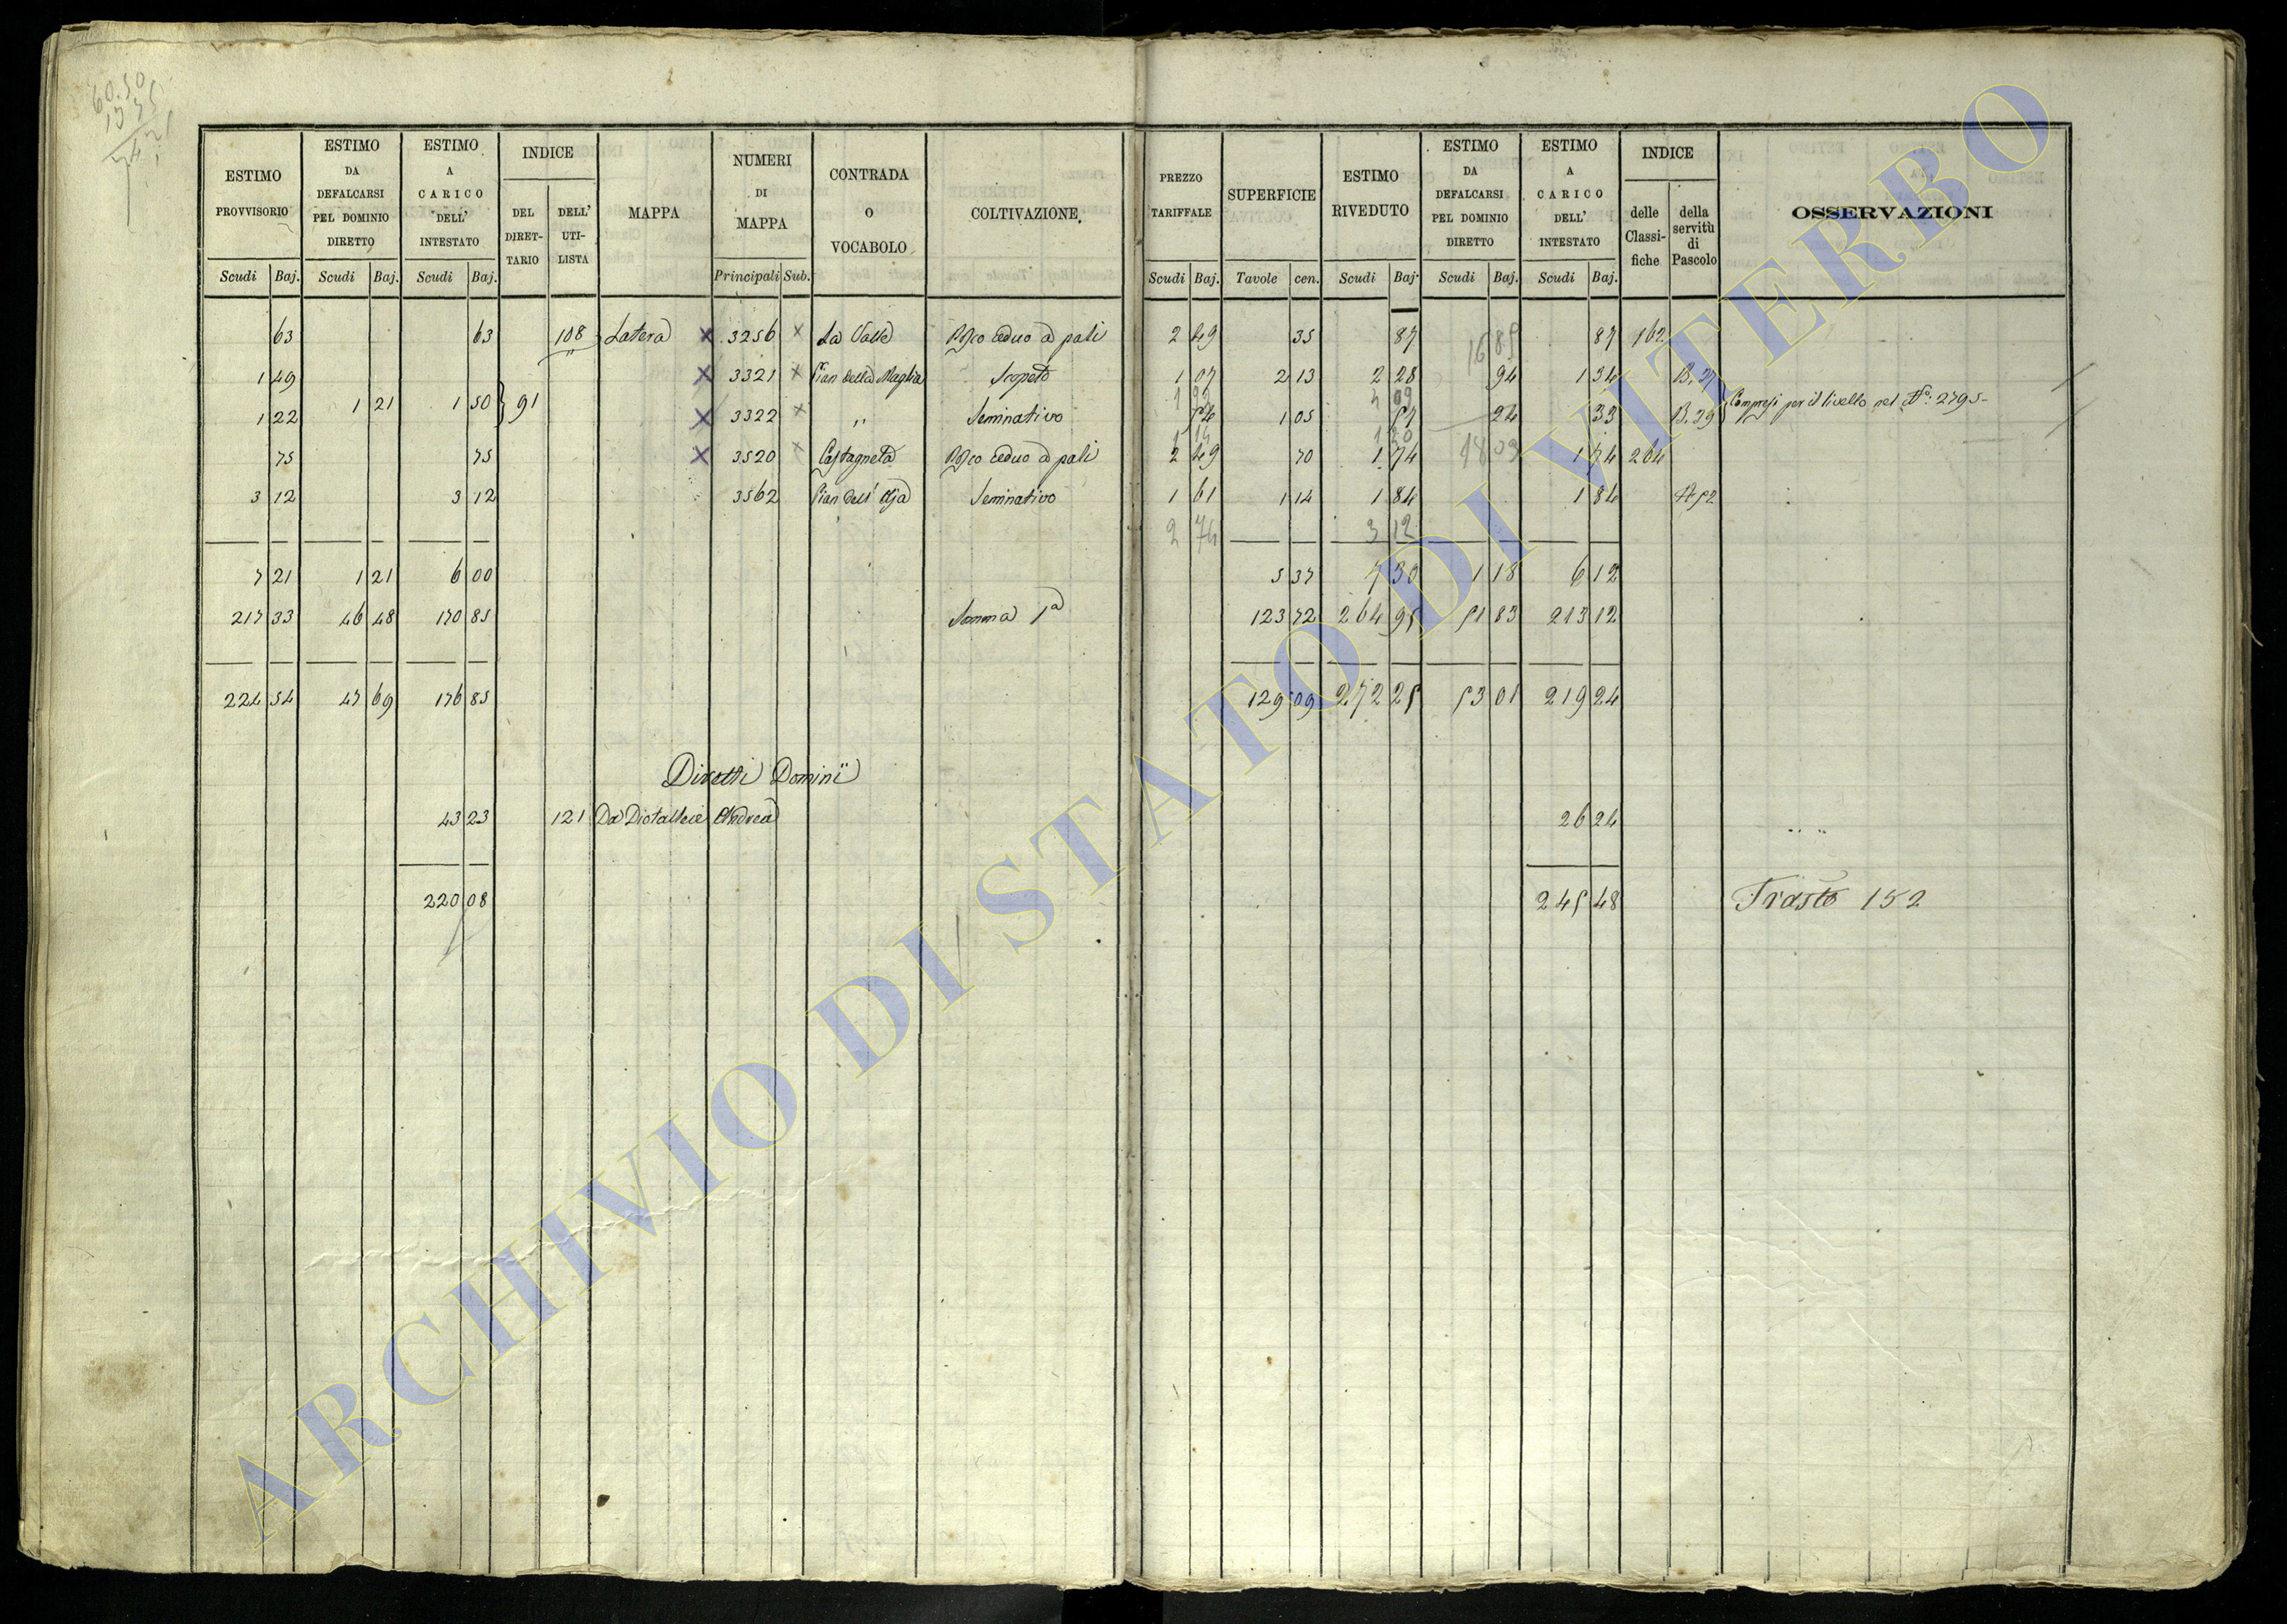 60.50
ESTIMO PROVVISORIO Scudi Baj.
ESTIMO DA DEFALCARSI PEL DOMINIO DIRETTO Scudi Baj.
ESTIMO A CARICO DELL' INTESTATO Scudi Baj.
INDICE DEL DIRET-TARIO DELL' UTI-LISTA
MAPPA
NUMERI DI MAPPA Principali Sub.
CONTRADA O VOCABOLO
COLTIVAZIONE.
PREZZO TARIFFALE Scudi Baj.
SUPERFICIE Tavole cen.
ESTIMO RIVEDUTO Scudi Baj.
ESTIMO DA DEFALCARSI PEL DOMINIO DIRETTO Scudi Baj.
ESTIMO A CARICO DELL' INTESTATO Scudi Baj.
INDICE delle Classi-fiche della servitù di Pascolo
OSSERVAZIONI
63 63 108 Latera × 3256 × La Valle Bosco ceduo a pali 2 49 35 87 87 162
1 49 × 3321 × Pian della Maglia Scopeto 1 07 2 13 2 28 94 1 34 B. 27
1 21 1 50 } 91 Compresi per il livello nel N°: 2795
1 22 × 3322 × " Seminativo 54 1 05 57 24 33 B. 39
75 75 × 3520 × Castagneta Bosco ceduo a pali 2 49 70 1 74 1 74 264
3 12 3 12 3562 Pian dell' Aja Seminativo 1 61 1 14 1 84 1 84
2 74 3 12
7 21 1 21 6 00 5 37 7 30 1 18 6 12
217 33 46 48 170 85 Somma 1a 123 72 264 95 51 83 213 12
224 54 47 69 176 85 129 09 272 25 53 01 219 24
Diretti Dominii
43 23 121 Da Diotallevi Andrea 26 24
220 08 245 48 Trasto 152
ARCHIVIO DI STATO DI VITERBO